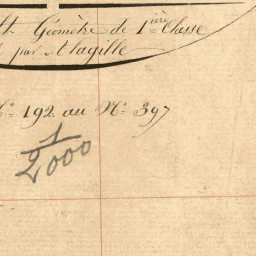 t Géomètre de 1ière Classe
par Magille
No 192 au No 397
1/2000